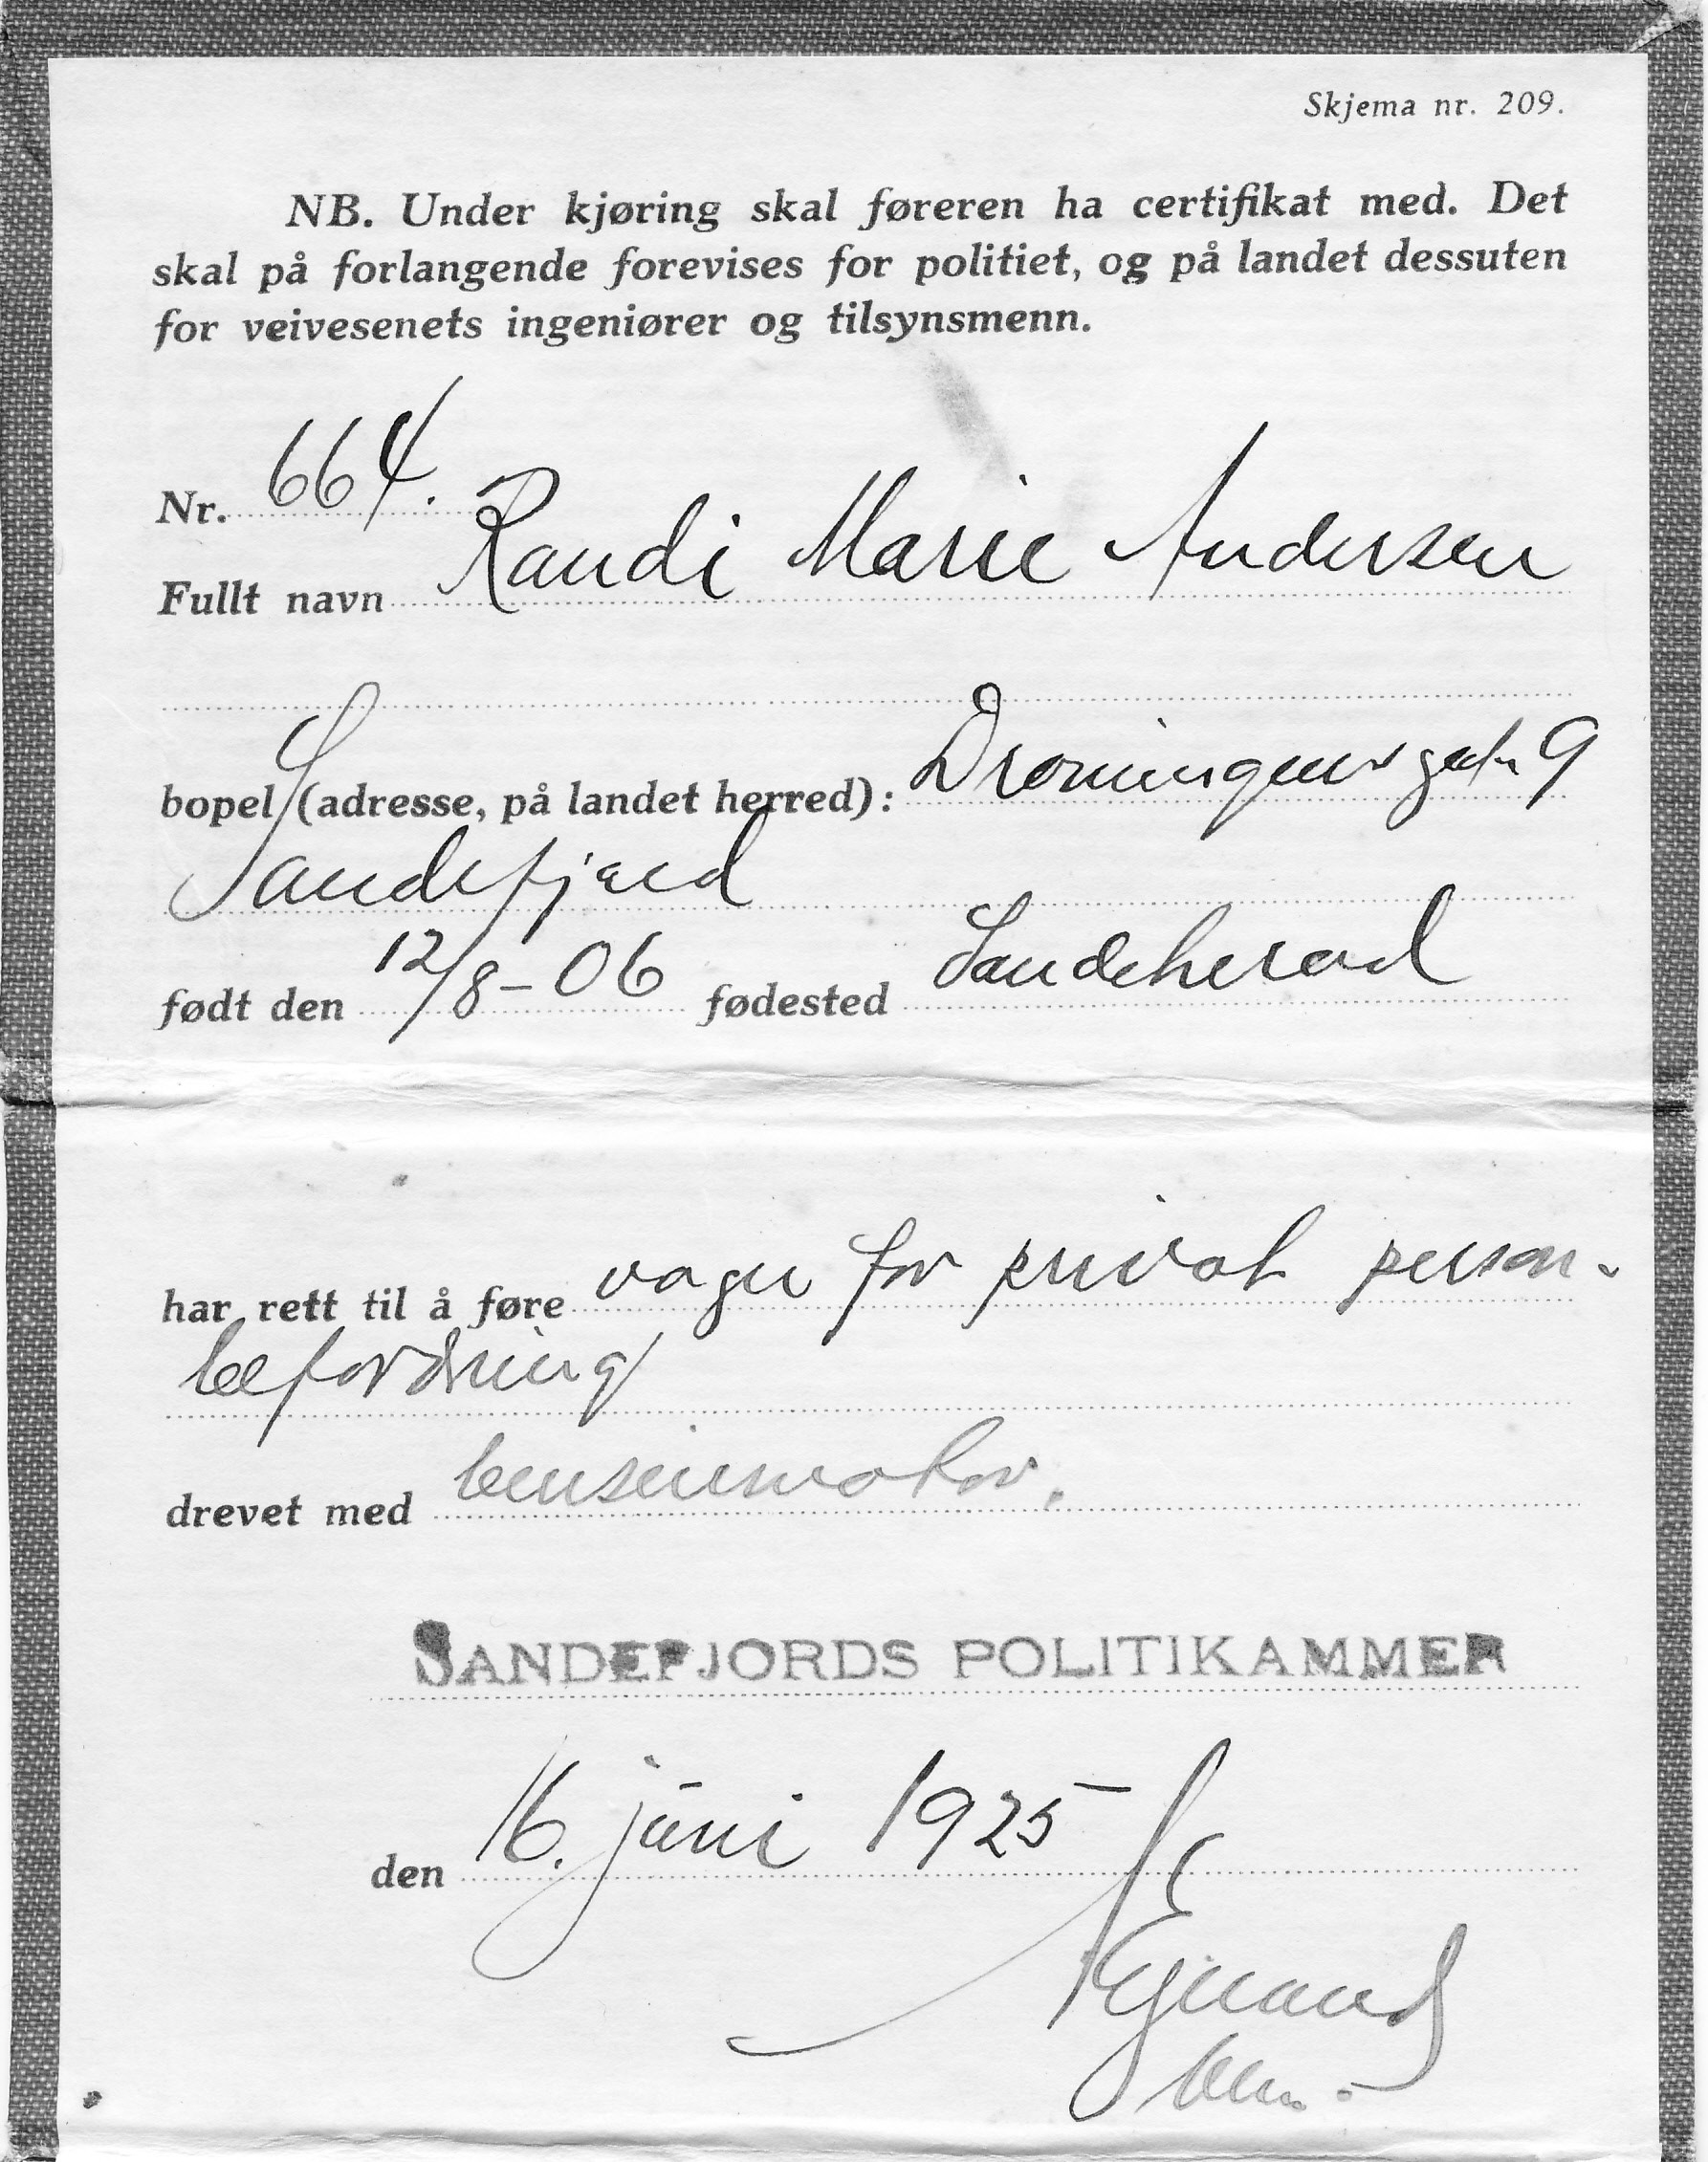 Skjema nr. 209.
NB. Under kjøring skal føreren ha certifikat med. Det
skal på forlangende forevises for politiet, og på landet dessuten
for veivesenets ingeniører og tilsynsmenn.
Nr. 664.
Fullt navn Randi Marie Andersen
bopel (adresse, på landet herred): Droningens gate 9
Sandefjord
født den 12/8-06 fødested Sandeherad
har rett til å føre vogn for privat person-
befordring
drevet med bensinmotor.
SANDEFJORDS POLITIKAMMER
den 16. juni 1925